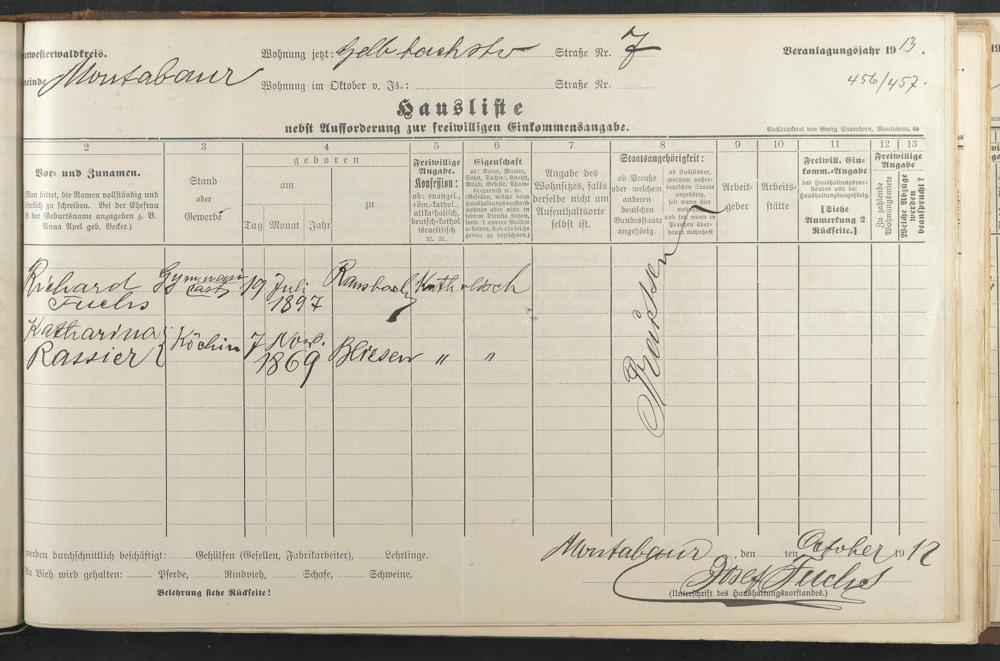 nwesterwaldkreis.
Wohnung jetzt: Gelbbachstr Straße Nr. 7
Veranlagungsjahr 1913.
einde Montabaur
Wohnung im Oktober v. Js.: Straße Nr.
456/457.
Hausliste
nebst Aufforderung zur freiwilligen Einkommensangabe.
Buchdruckerei von Georg Sauerborn, Montabaur.
2 3 4 5 6 7 8 9 10 11 12 13
Vor- und Zunamen.
Man bittet, die Namen vollständig und
deutlich zu schreiben. Bei der Ehefrau
ist der Geburtsname anzugeben z. B.
Anna Apel geb. Becker.)
Stand
oder
Gewerbe
geboren
am
zu
Tag Monat Jahr
Freiwillige
Angabe.
Konfession:
ob: evangel.,
röm.-kathol.
altkatholisch,
deutsch-kathol.
israelitisch
ec. ec.
Eigenschaft
ob: Vater, Mutter,
Sohn, Tochter, Knecht,
Magd, Geselle, Cham-
bergarnist ec. ec.
(Gesellen, welche beim
Haushaltungsvorstand
wohnen aber nicht in
seinem Dienste stehen,
sondern f. andere Meister
arbeiten, sind als solche
genau zu bezeichnen.)
Angabe des
Wohnsitzes, falls
derselbe nicht am
Aufenthaltsorte
selbst ist.
Staatsangehörigkeit:
ob Preuße
oder welchem
anderen
deutschen
Bundesstaate
angehörig.
ob Ausländer,
welchem außer-
deutschen Staate
angehörig,
seit wann hier
und seit wann in
Preußen über-
haupt wohnhaft
Arbeit-
geber
Arbeits-
stätte
Freiwill. Ein-
komm.-Angabe
des Haushaltungsvor-
standes und der
Haushaltungsangehörig.
[Siehe
Anmerkung 2
Rückseite.]
Freiwillige
Angabe
Zu zahlende
Wohnungsmiete
Welche Abzüge
werden
beansprucht?
Richard Gymnasi 19 Juli Ransbach Katholisch
Fuchs ast 1897
Katharina Köchin 7 Nov. Bliesen " "
Rassier 1869
Preussen
werden durchschnittlich beschäftigt: Gehülfen (Gesellen, Fabrikarbeiter), Lehrlinge.
An Vieh wird gehalten: Pferde, Rindvieh, Schafe, Schweine.
Belehrung siehe Rückseite!
Montabaur, den ten October 1912
Josef Fuchs
(Unterschrift des Haushaltungsvorstandes.)